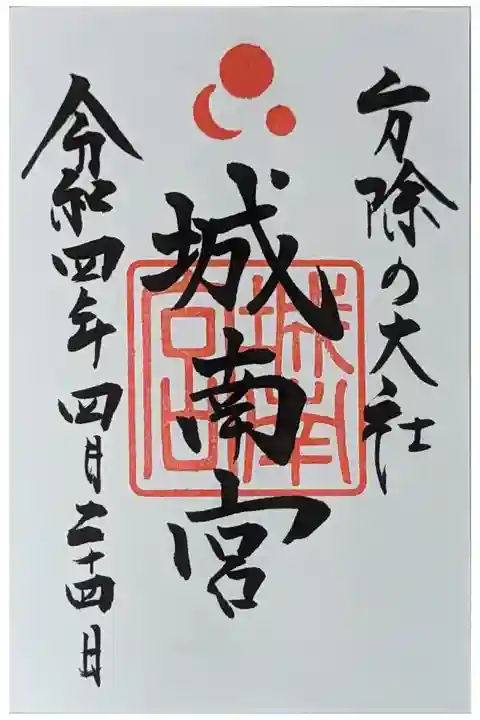 方除の大社
城南宮
城南宮
令和四年四月二十四日